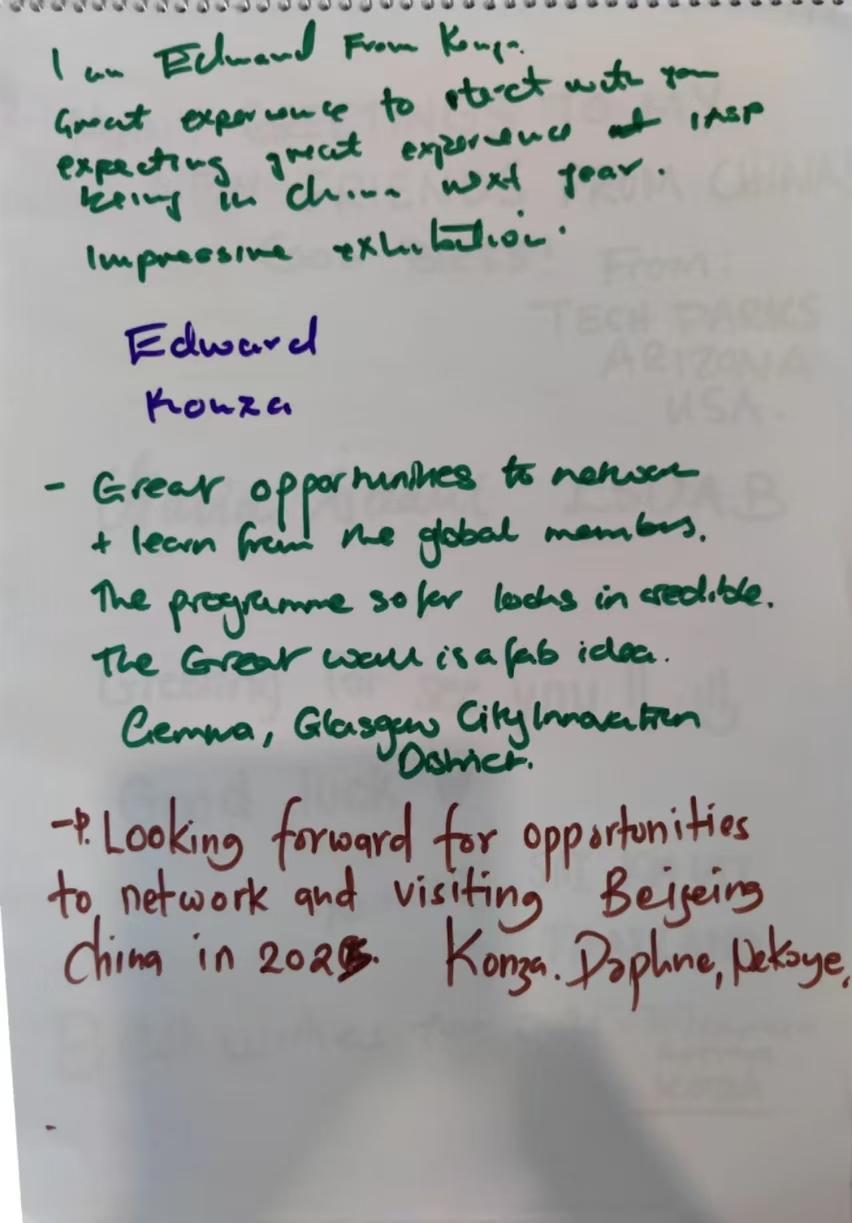 I am Edward From Konza.
Great experience to start with you
expecting great experience at IASP
being in China next year.
Impressive exhibition.
Edward
Konza
- Great opportunities to network
+ learn from the global members.
The programme so far looks incredible.
The Great wall is a fab idea.
Gemma, Glasgow City Innovation
District.
→ Looking forward for opportunities
to network and visiting Beijeing
China in 2025. Konza. Daphne, Nekoye,
FROM CHINA
From:
TECH PARKS
ARIZONA
USA.
Good luck